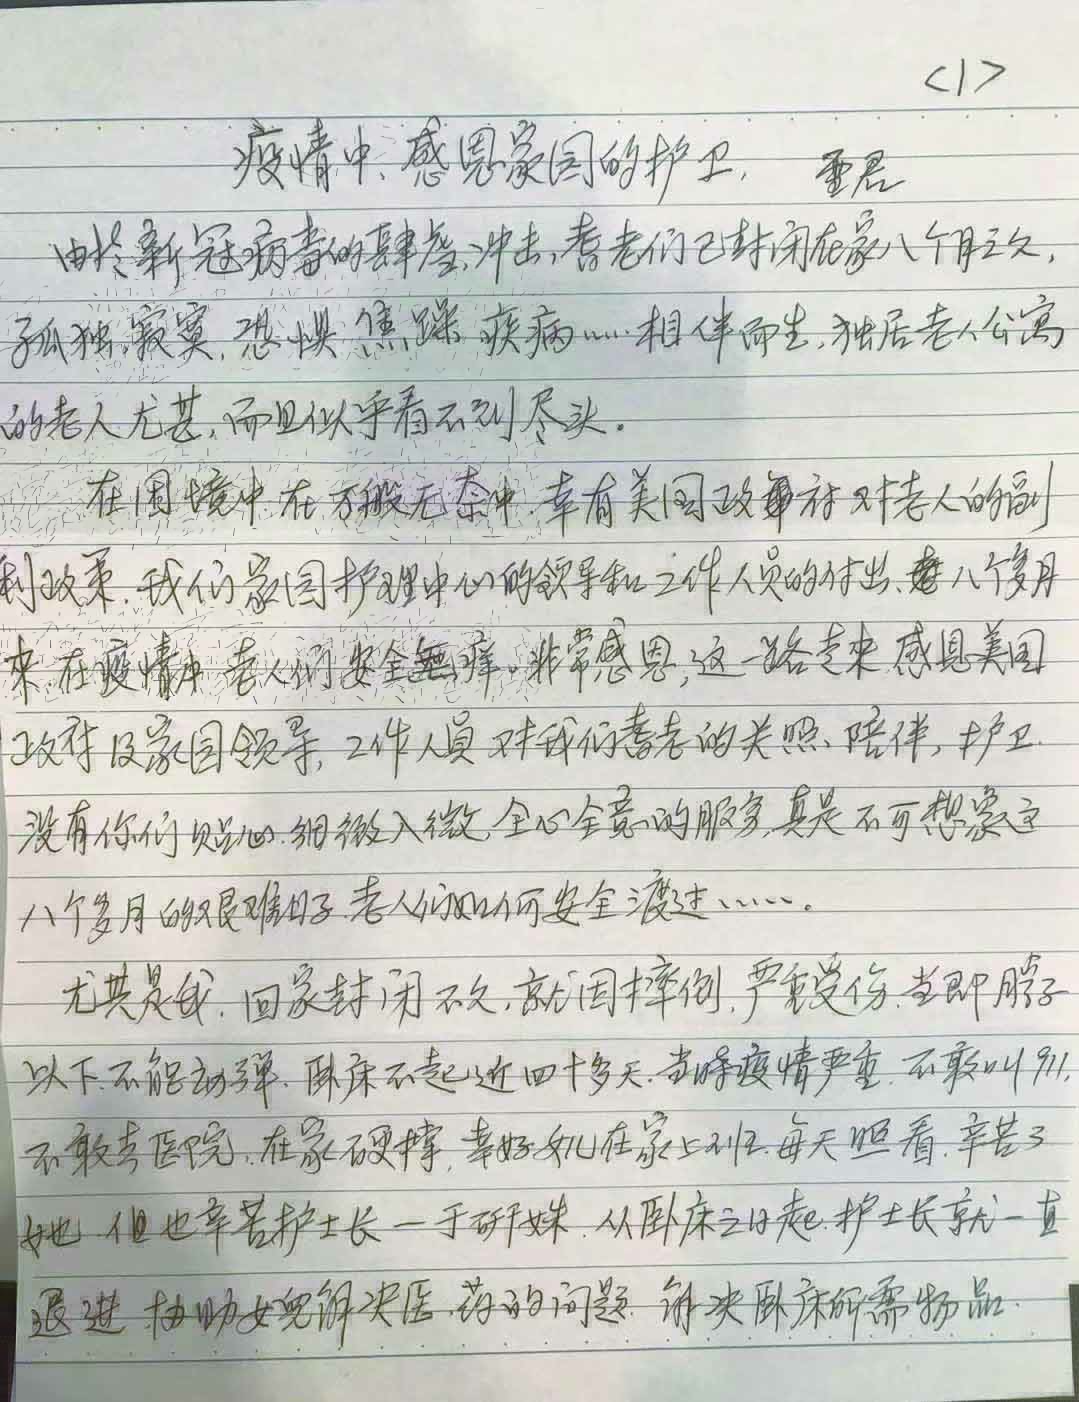 <1>
疫情中、感恩家园的护卫. 亚君
由於新冠病毒的肆虐、冲击,耆老们已封闭在家八个月之久,
孤独,寂寞,恐惧 焦躁 疾病……相伴而生,独居老人公寓
的老人尤甚,而且似乎看不到尽头。
在困境中在万般无奈中.幸有美国政府对老人的福
利政策.我们家园护理中心的领导和工作人员的付出、八个多月
来在疫情中老人们安全無痒.非常感恩,这一路走来感恩美国
政府及家园领导,工作人员对我们耆老的关照、陪伴,护卫.
没有你们贴心.细微入微.全心全意的服务,真是不可想象这
八个多月的艰难日子.老人们如何安全渡过……。
尤其是我.回家封闭不久,就因摔倒,严重受伤.当即脖子
以下.不能动弹.卧床不起近四十多天.当时疫情严重.不敢叫911,
不敢去医院.在家硬撑,幸好女儿在家上班.每天照看.辛苦了
她 但也辛苦护士长—于研姝.从卧床之日起.护士长就一直
跟进 协助女兒解决医.药的问题.解决卧床所需物品.